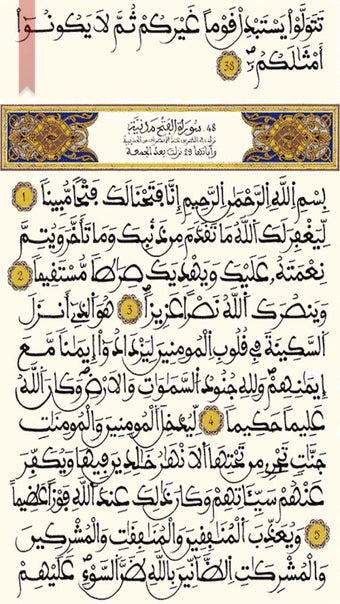 تَتَوَلَّوْاْ يَسْتَبْدِلْ قَوْماً غَيْرَكُمْ ثُمَّ لَا يَكُونُوٓاْ
أَمْثَٰلَكُمْ 38
48. سورة الفتح مدنية
نزلت في الطريق عند الانصراف من الحديبية
وآياتها 29 نزلت بعد الجمعة
بِسْمِ اللَّهِ الرَّحْمَٰنِ الرَّحِيمِ إِنَّا فَتَحْنَا لَكَ فَتْحاً مُّبِيناً 1
لِّيَغْفِرَ لَكَ اللَّهُ مَا تَقَدَّمَ مِن ذَنۢبِكَ وَمَا تَأَخَّرَ وَيُتِمَّ
نِعْمَتَهُۥ عَلَيْكَ وَيَهْدِيَكَ صِرَٰطاً مُّسْتَقِيماً 2
وَيَنصُرَكَ اللَّهُ نَصْراً عَزِيزاً 3 هُوَ الَّذِےٓ أَنزَلَ
السَّكِينَةَ فِے قُلُوبِ الْمُومِنِينَ لِيَزْدَادُوٓاْ إِيمَٰناً مَّعَ
إِيمَٰنِهِمْ وَلِلهِ جُنُودُ السَّمَٰوَٰتِ وَالَارْضِ وَكَانَ اللَّهُ
عَلِيماً حَكِيماً 4 لِّيُدْخِلَ الْمُومِنِينَ وَالْمُومِنَٰتِ
جَنَّٰتٍ تَجْرِے مِن تَحْتِهَا الَانْهَٰرُ خَٰلِدِينَ فِيهَا وَيُكَفِّرَ
عَنْهُمْ سَيِّـَٔاتِهِمْ وَكَانَ ذَٰلِكَ عِندَ اللَّهِ فَوْزاً عَظِيماً
5 وَيُعَذِّبَ الْمُنَٰفِقِينَ وَالْمُنَٰفِقَٰتِ وَالْمُشْرِكِينَ
وَالْمُشْرِكَٰتِ الظَّآنِّينَ بِاللَّهِ ظَنَّ السَّوْءِ عَلَيْهِمْ